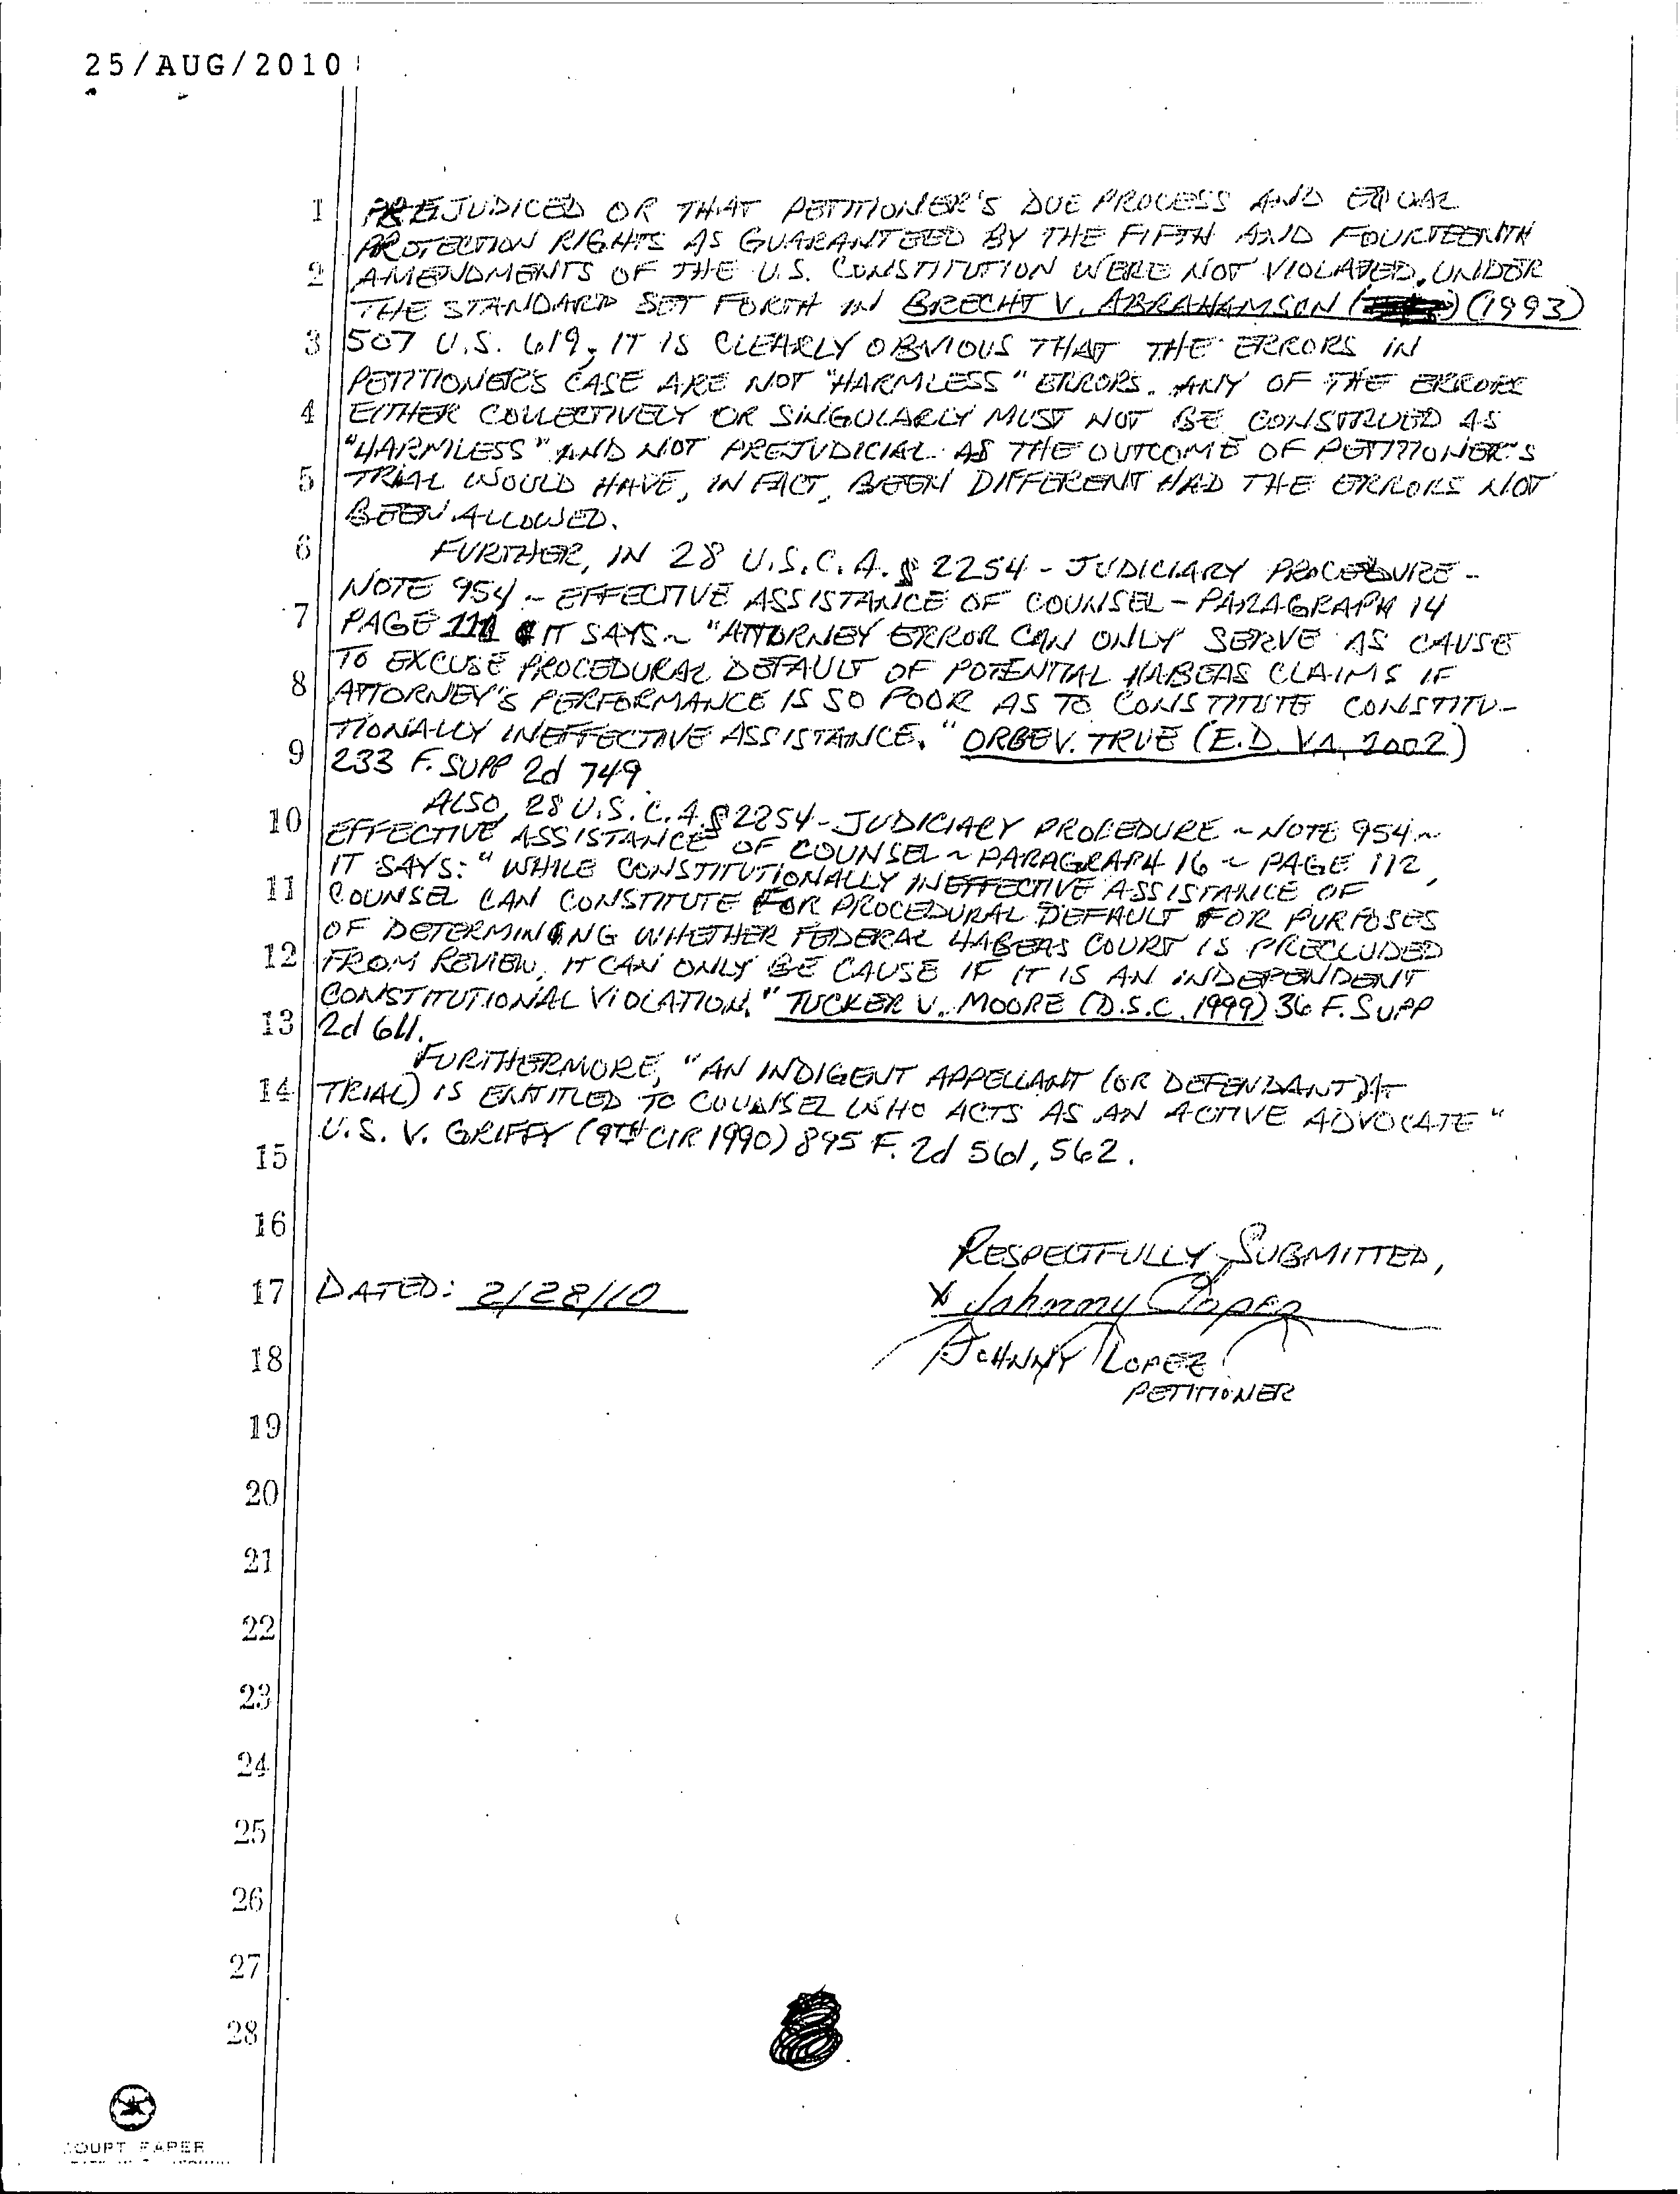 25/AUG/2010
1 PREJUDICED OR THAT PETITIONER'S DUE PROCESS AND EQUAL
PROTECTION RIGHTS AS GUARANTEED BY THE FIFTH AND FOURTEENTH
2 AMENDMENTS OF THE U.S. CONSTITUTION WERE NOT VIOLATED. UNDER
THE STANDARD SET FORTH IN BRECHT V. ABRAHAMSON (1993)
3 507 U.S. 619, IT IS CLEARLY OBVIOUS THAT THE ERRORS IN
PETITIONER'S CASE ARE NOT "HARMLESS" ERRORS. ANY OF THE ERRORS
4 EITHER COLLECTIVELY OR SINGULARLY MUST NOT BE CONSTRUED AS
"HARMLESS" AND NOT PREJUDICIAL AS THE OUTCOME OF PETITIONER'S
5 TRIAL WOULD HAVE, IN FACT, BEEN DIFFERENT HAD THE ERRORS NOT
BEEN ALLOWED.
6 FURTHER, IN 28 U.S.C.A. § 2254 - JUDICIARY PROCEDURE -
NOTE 954 - EFFECTIVE ASSISTANCE OF COUNSEL - PARAGRAPH 14
7 PAGE 111 IT SAYS ~ "ATTORNEY ERROR CAN ONLY SERVE AS CAUSE
TO EXCUSE PROCEDURAL DEFAULT OF POTENTIAL HABEAS CLAIMS IF
8 ATTORNEY'S PERFORMANCE IS SO POOR AS TO CONSTITUTE CONSTITU-
TIONALLY INEFFECTIVE ASSISTANCE." ORBE V. TRUE (E.D. VA, 2002)
9 233 F. SUPP 2d 749
10 ALSO, 28 U.S.C.A. § 2254 - JUDICIARY PROCEDURE ~ NOTE 954 ~
EFFECTIVE ASSISTANCE OF COUNSEL ~ PARAGRAPH 16 ~ PAGE 112,
IT SAYS: "WHILE CONSTITUTIONALLY INEFFECTIVE ASSISTANCE OF
11 COUNSEL CAN CONSTITUTE FOR PROCEDURAL DEFAULT FOR PURPOSES
OF DETERMINING WHETHER FEDERAL HABEAS COURT IS PRECLUDED
12 FROM REVIEW, IT CAN ONLY BE CAUSE IF IT IS AN INDEPENDENT
CONSTITUTIONAL VIOLATION." TUCKER V. MOORE (D.S.C. 1999) 36 F. SUPP
13 2d 611.
FURTHERMORE, "AN INDIGENT APPELLANT (OR DEFENDANT) AT
14 TRIAL) IS ENTITLED TO COUNSEL WHO ACTS AS AN ACTIVE ADVOCATE"
U.S. V. GRIFFY (9TH CIR 1990) 895 F. 2d 561, 562.
15
16
RESPECTFULLY SUBMITTED,
17 DATED: 2/28/10 x Johnny Lopez
18 JOHNNY LOPEZ
PETITIONER
19
20
21
22
23
24
25
26
27
28
COURT PAPER